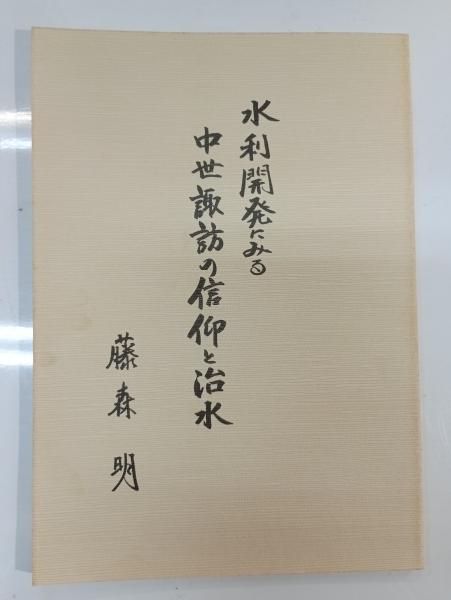 水利開発にみる
中世諏訪の信仰と治水
藤森明